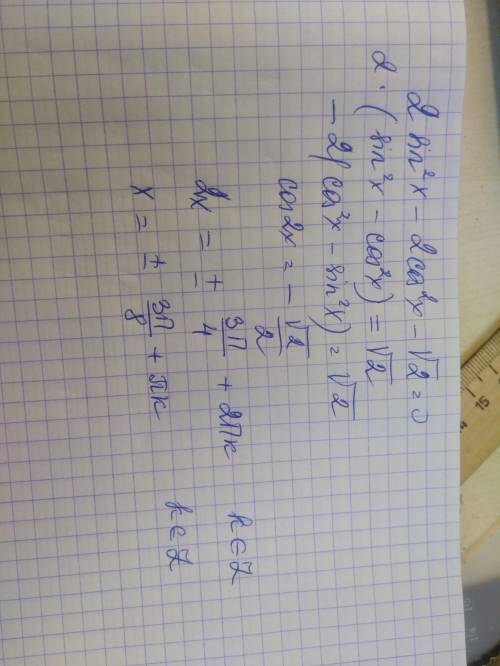 2 sin²x - 2cos²x - √2 = 0
2 · (sin²x - cos²x) = √2
- 2(cos²x - sin²x) = √2
cos2x = - √2/2
2x = ± 3П/4 + 2Пк k ∈ Z
x = ± 3П/8 + πк k ∈ Z
15